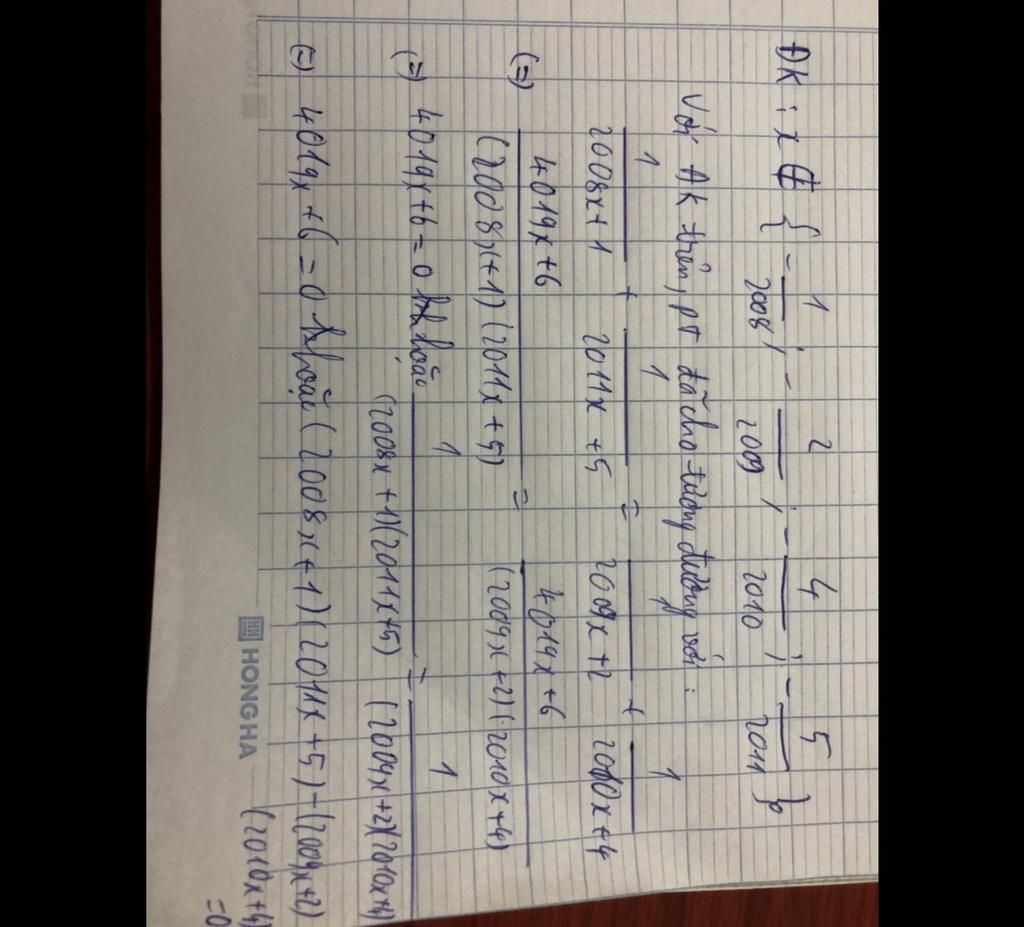 ĐK : x ∉ { -1/2008 ; -2/2009 ; -4/2010 ; -5/2011 }
Với ĐK trên, pt đã cho tương đương với :
1/(2008x+1) + 1/(2011x+5) = 1/(2009x+2) + 1/(2010x+4)
(=) (4019x+6)/((2008x+1)(2011x+5)) = (4019x+6)/((2009x+2)(2010x+4))
(=) 4019x+6=0 hoặc 1/((2008x+1)(2011x+5)) = 1/((2009x+2)(2010x+4))
(=) 4019x+6=0 hoặc (2008x+1)(2011x+5)-(2009x+2)
(2010x+4)
=0
HONG HA